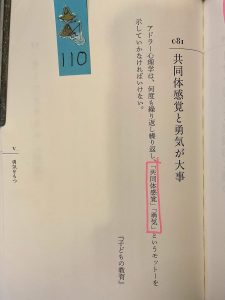 081
共同体感覚と勇気が大事
アドラー心理学は、何度も繰り返し、「共同体感覚」「勇気」というモットーを
示していかなければいけない。
『子どもの教育』
110
V
勇気をもつ